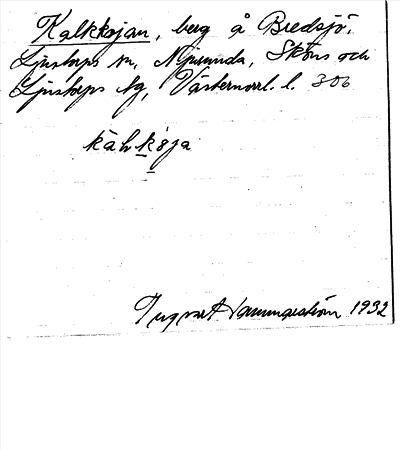 Kalkkojan, berg å Bredsjö,
Ljustorps sn, Njurunda, Sköns och
Ljustorps tg, Västernorrl. l. 306
kàh k'øja
Ingvart Hammarström 1932